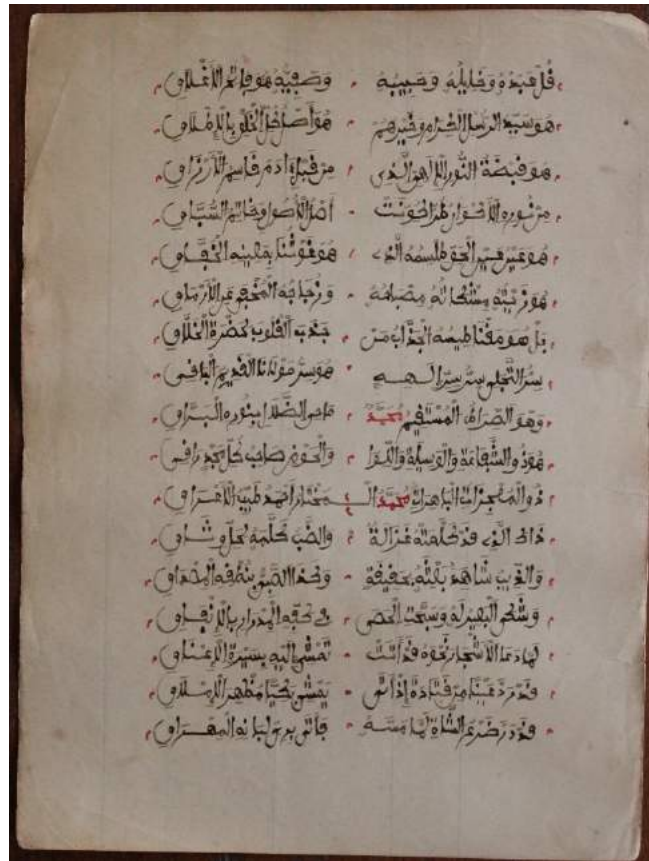 قل عبده وخليله وحبيبه وصفيه هو فاتح الأغلاق
هو سيد الرسل الكرام وخيرهم هو أصل كل الخلق بالإطلاق
هو قبضة النور الإلهي الذي من قبل آدم قاسم الأرزاق
من نوره الأكوان طرا كونت أصل الأصول وخاتم السباق
هو عين الحق طلسمه الذي هو غوثنا
هو زيته مشكاته مصباحه وزجاجه
بل هو مقناطيسه الجذاب من جذب القلوب لحضرة الخلاق
سر التجلي سر سر إلهه هو سر مولانا القديم الباقي
وهو الصراط المستقيم محمد ماحي الضلال بنوره البراق
هو ذو الشفاعة والوسيلة واللوا والحوض صاحب كل مجد راقي
ذو المعجزات الباهرات محمد المختار أحمد طيب الأعراق
ذاك الذي قد كلمته غزالة والضب كلمه
والذيب شاهد بعثه بحقيقة وكذا الصبي
وشكى البعير له وسبحت الحصى في كفه المدرار بالإنفاق
لما دعا الأشجار نحوه قد أتت تمشي إليه بسيرة الإعناق
قد رد عينا من قتادة إذ أتى يمشي
قد در ضرع الشاة لما مسه